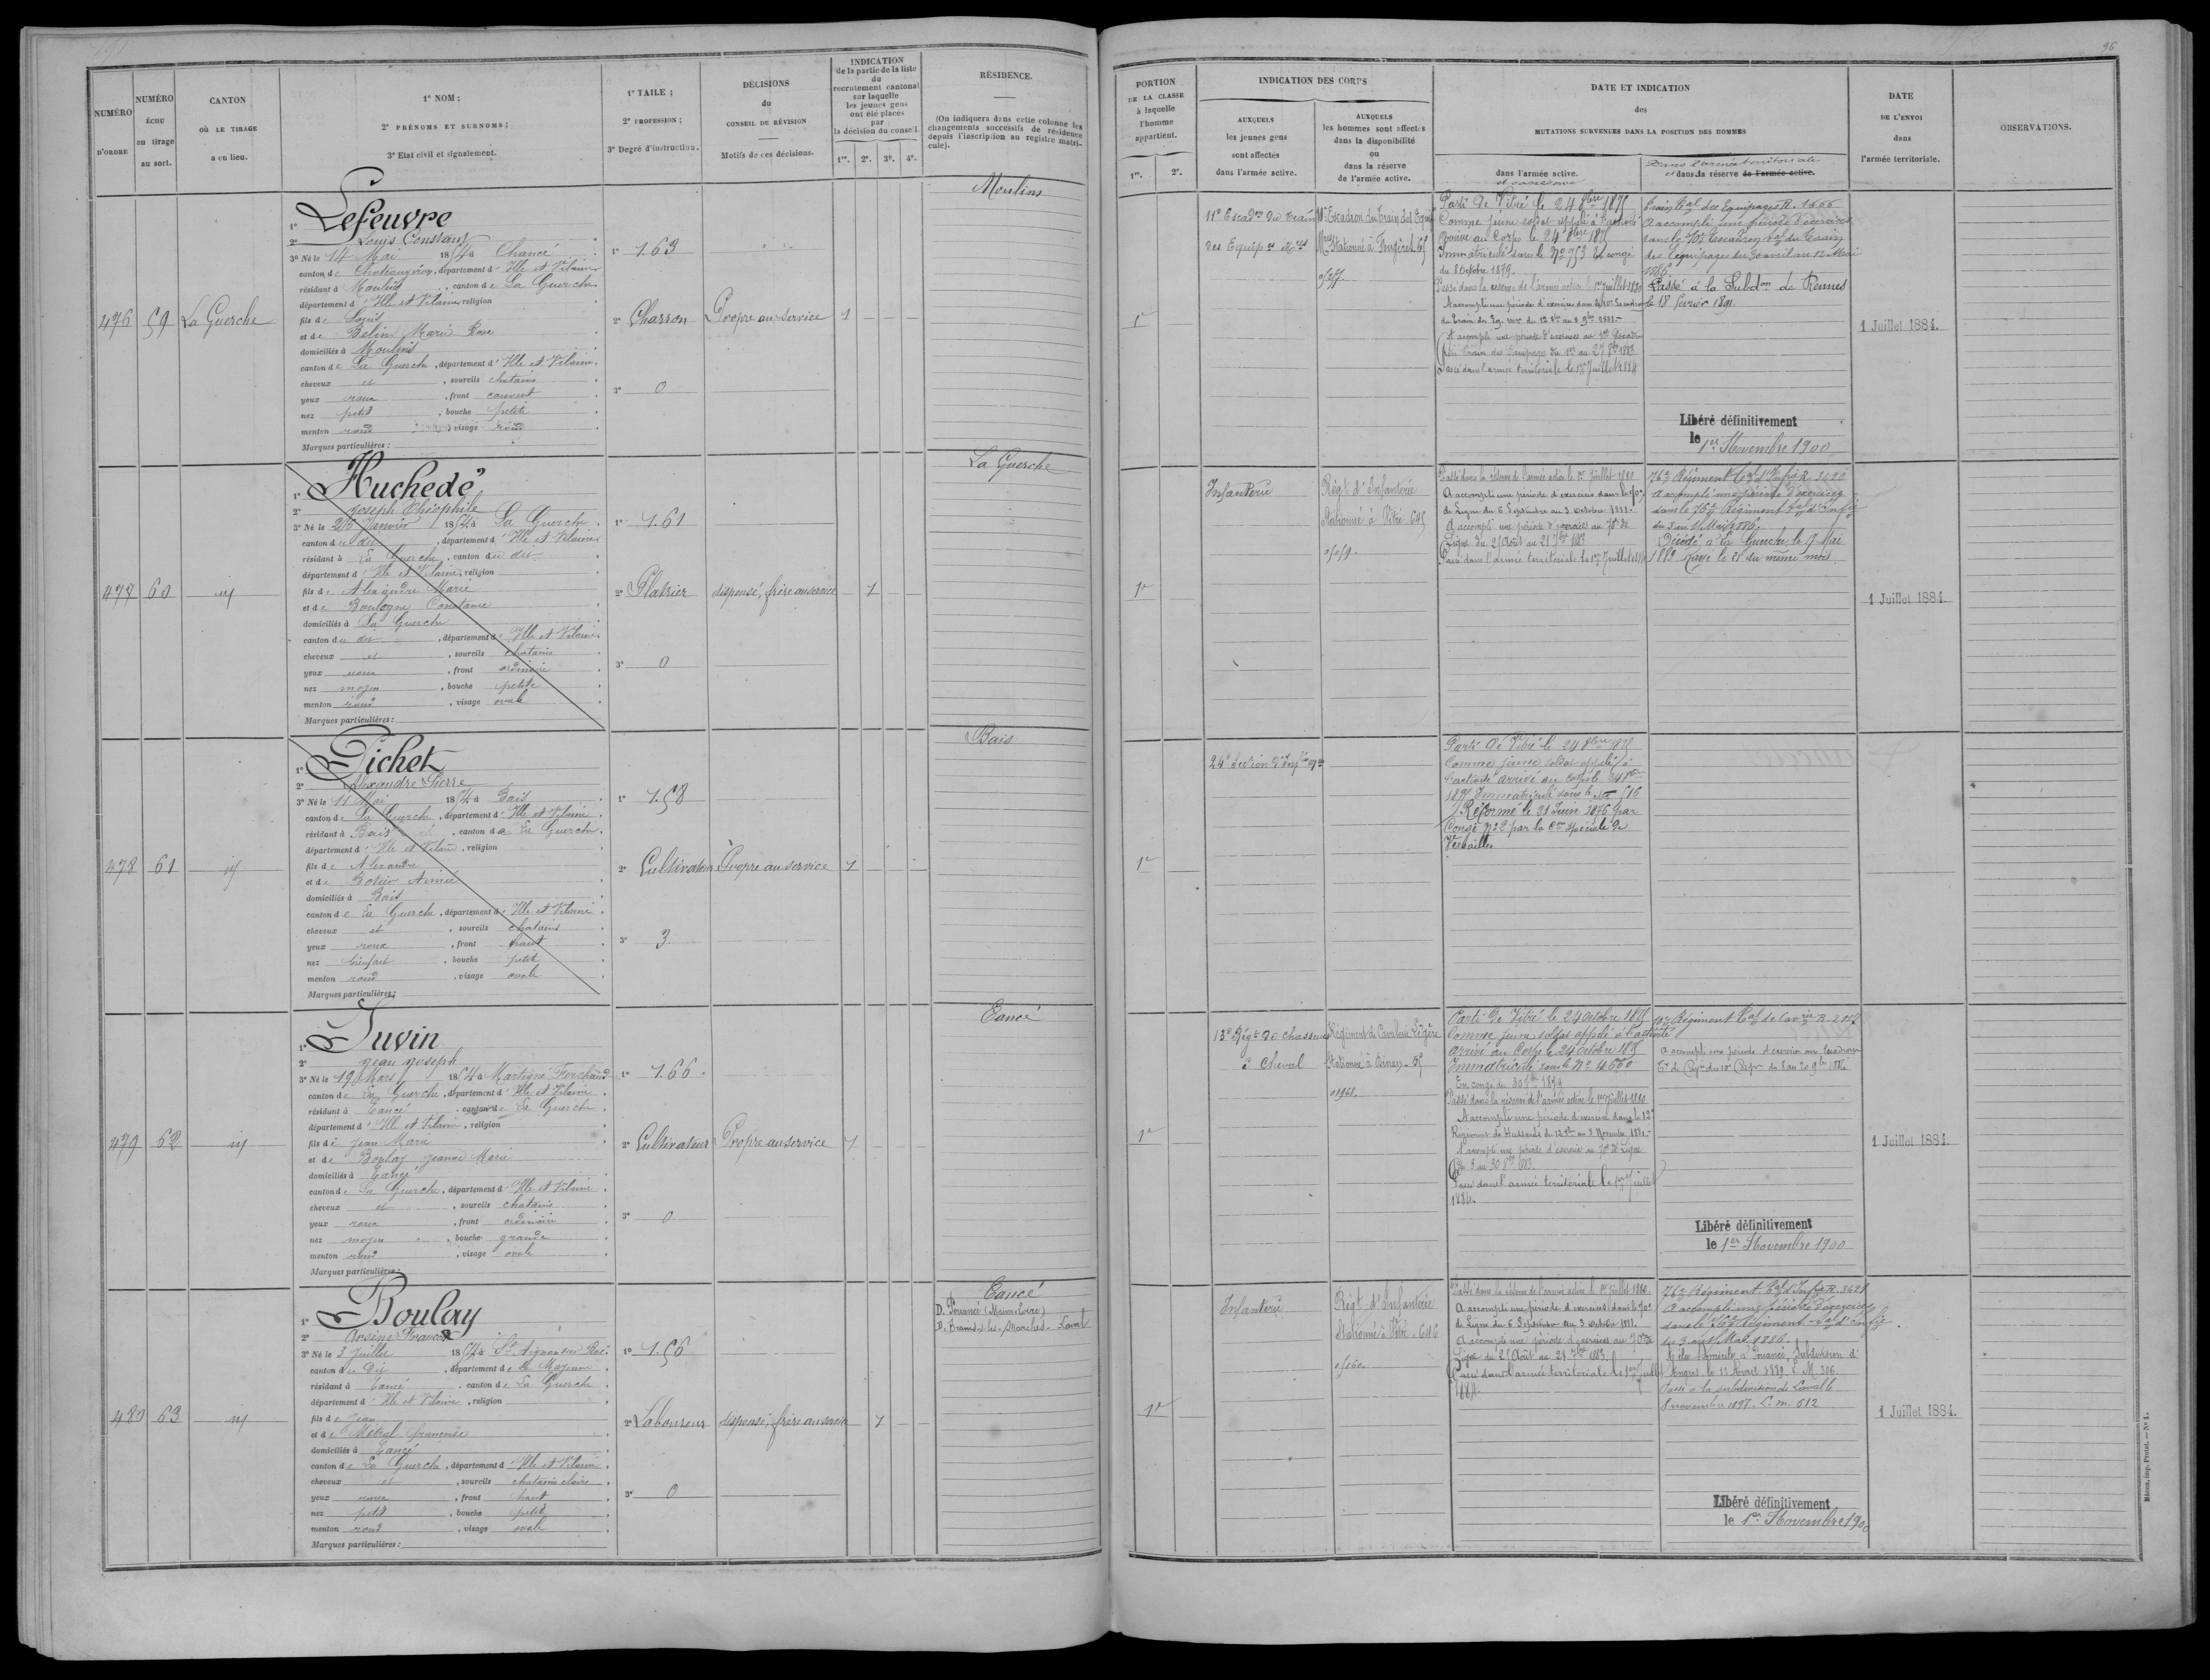 96
NUMÉRO D'ORDRE
NUMÉRO ÉCHU au tirage au sort.
CANTON OÙ LE TIRAGE a eu lieu.
1° NOM ;
2° PRÉNOMS ET SURNOMS ;
3° Etat civil et signalement.
1° TAILE ;
2° PROFESSION ;
3° Degré d'instruction.
DÉCISIONS du CONSEIL DE RÉVISION
Motifs de ces décisions.
INDICATION de la partie de la liste du recrutement cantonal sur laquelle les jeunes gens ont été placés par la décision du conseil.
1re. 2e. 3e. 4e.
RÉSIDENCE.
(On indiquera dans cette colonne les changements successifs de résidence depuis l'inscription au registre matricule).
PORTION DE LA CLASSE à laquelle l'homme appartient.
1re. 2e.
INDICATION DES CORPS
AUXQUELS les jeunes gens sont affectés dans l'armée active.
AUXQUELS les hommes sont affectés dans la disponibilité ou dans la réserve de l'armée active.
DATE ET INDICATION
des
MUTATIONS SURVENUES DANS LA POSITION DES HOMMES
dans l'armée active.
et réserve
Dans l'armée territoriale
et dans la réserve de l'armée active.
DATE DE L'ENVOI dans l'armée territoriale.
OBSERVATIONS.
476
59
La Guerche
1° Lefeuvre
2° Louis Constant
3° Né le 14 Mai 1854 à Chancé
canton de Chateaugiron, département d'Ille et Vilaine
résidant à Moulins, canton de La Guerche
département d'Ille et Vilaine, religion
fils de Louis
et de Belin Marie Rose
domiciliés à Moulins
canton de La Guerche, département d'Ille et Vilaine.
cheveux et, sourcils chatains
yeux roux, front couvert
nez petit, bouche petite
menton rond visage rond
Marques particulières :
1° 1.63
2° Charron
3° 0
Propre au service
1
Moulins
1e
11e Escadon du train
des Equipes Mres
10e Escadron du train des Equip
Mres Stationné à Fougères 65
Parti de Vitré le 24 8bre 1875
Comme jeune soldat appelé à l'activité
Arrivé au Corps le 24 8bre 1875
Immatriculé sous le No 953 En congé
du 8 Octobre 1879.
Passé dans la réserve de l'armée active le 1er juillet 1880
A accompli une période d'exercices dans le 10e Escadron
du train des Eq. mres du 12 8bre au 8 9bre 1881.
A accompli une période d'exercices au 10e Escadn
du train des Equipages du 1er au 27 8bre 1883
Passé dans l'armée territoriale le 1er Juillet 1884
Train Cal des Equipages R. 1666
A accompli une période d'exercices
dans le 10e Escadron Cal du Train
des équipages du 30 avril au 12 Mai
1886.
Passé à la Subdon de Rennes
le 18 février 1891.
Libéré définitivement
le 1er Novembre 1900
1 Juillet 1884.
477
60
1° Huchedé
2° Joseph Théophile
3° Né le 26 Janvier 1854 à La Guerche.
canton du dit, département d'Ille et Vilaine
résidant à La Guerche, canton du dit
département d'Ille et Vilaine, religion
fils de Alexandre Marie
et de Boulogne Constance
domiciliés à La Guerche
canton du dit, département d'Ille et Vilaine.
cheveux et, sourcils chatains
yeux roux, front ordinaire
nez moyen, bouche petite
menton rond, visage ovale
Marques particulières :
1° 1.61
2° Platrier
3° 0
dispensé, frère au service
1
La Guerche
1e
Infanterie
Régt d'Infanterie
Stationné à Vitré 645
Passé dans la réserve de l'armée active le 1er juillet 1880
A accompli une période d'exercices dans le 70e
de Ligne du 6 Septembre au 3 Octobre 1881.
A accompli une période d'exercices au 70e de
Ligne du 25 Août au 21 7bre 1883
Passé dans l'armée territoriale le 1er Juillet 1884
76e Régiment Cal d'Infie R. 3620
A accompli une période d'exercices
dans le 76e Régiment Cal d'Infie
du 3 au 15 Mai 1886.
Décédé à La Guerche le 17 Mai
1889 Rayé le 21 du même mois.
1 Juillet 1884.
478
61
1° Pichet
2° Alexandre Pierre
3° Né le 11 Mai 1854 à Bais
canton de La Guerche, département d'Ille et Vilaine.
résidant à Bais, canton de La Guerche.
département d'Ille et Vilaine, religion
fils de Alexandre
et de Botier Aimée
domiciliés à Bais
canton de La Guerche, département d'Ille et Vilaine.
cheveux et, sourcils chatains
yeux roux, front haut
nez bienfait, bouche petite
menton rond, visage ovale
Marques particulières :
1° 1.58
2° Cultivateur
3° 3
Propre au service
1
Bais
1e
Parti de Vitré le 24 8bre 1875
Comme jeune soldat appelé à
l'activité arrivé au corps le 24 8bre
1875 Immatriculé sous le No 516
Réformé le 21 Juin 1876 par
Congé No 2 par la Con spéciale de
Versailles
479
62
1° Juvin
2° Jean Joseph
3° Né le 19 Mars 1854 à Martigné Ferchaud
canton de La Guerche, département d'Ille et Vilaine.
résidant à Eancé, canton de La Guerche.
département d'Ille et Vilaine, religion
fils de Jean Marie
et de Boulay Jeanne Marie
domiciliés à Eancé
canton de La Guerche, département d'Ille et Vilaine.
cheveux et, sourcils chatains
yeux roux, front ordinaire
nez moyen, bouche grande
menton rond, visage ovale
Marques particulières :
1° 1.66.
2° Cultivateur
3° 0
Propre au service
1
Eancé
1e
13e Régt de Chasseurs
à cheval
Régiment de Cavalerie Légère
Stationné à Dinan
Parti de Vitré le 24 Octobre 1875
Comme jeune soldat appelé à l'activité
Arrivé au Corps le 24 Octobre 1875
Immatriculé sous le No 4560
En congé du 30 7bre 1879
Passé dans la réserve de l'armée active le 1er juillet 1880.
A accompli une période d'exercices dans le 12e
Régiment de Hussards du 12 8bre au 8 Novembre 1881.
A accompli une période d'exercices au 70e de Ligne
du 3 au 30 8bre 1883.
Passé dans l'armée territoriale le 1er juillet
1884.
10e Régiment Cal de Cavie R. 2917
Libéré définitivement
le 1er Novembre 1900
1 Juillet 1884.
480
63
1° Boulay
2° Arsène François
3° Né le 3 Juillet 1854 à St Aignan sur Roë
canton du Dit, département de la Mayenne.
résidant à Eancé, canton de La Guerche
département d'Ille et Vilaine, religion
fils de Jean
et de Métral Françoise
domiciliés à Eancé
canton de La Guerche, département d'Ille et Vilaine.
cheveux et, sourcils chatains clairs
yeux roux, front haut
nez petit, bouche petite
menton rond, visage ovale
Marques particulières :
1° 1.56
2° Laboureur
3° 0
dispensé, frère au service
1
Eancé
D. Pouancé (Maine & Loire)
D. Brains-s-les-Marches - Laval
1e
Infanterie
Régt d'Infanterie
Stationné à Vitré - 646
Passé dans la réserve de l'armée active le 1er juillet 1880.
A accompli une période d'exercices dans le 70e
de Ligne du 6 Septembre au 3 octobre 1881.
A accompli une période d'exercices au 70e de
Ligne du 25 Août au 21 7bre 1883.
Passé dans l'armée territoriale le 1er juillet
1884.
76e Régiment Cal d'Infie R. 3621
A accompli une période d'exercices
dans le 76e Régiment Cal d'Infie
du 3 au 15 Mai 1886.
A élu domicile à Pouancé, Subdivision d'
Angers, le 1er Avril 1889. L. M. 306.
Passé à la subdivision de Laval le
8 novembre 1897. L. m. 612
Libéré définitivement
le 1er Novembre 1900
1 Juillet 1884.
Mâcon, imp. Protat. — No 1.